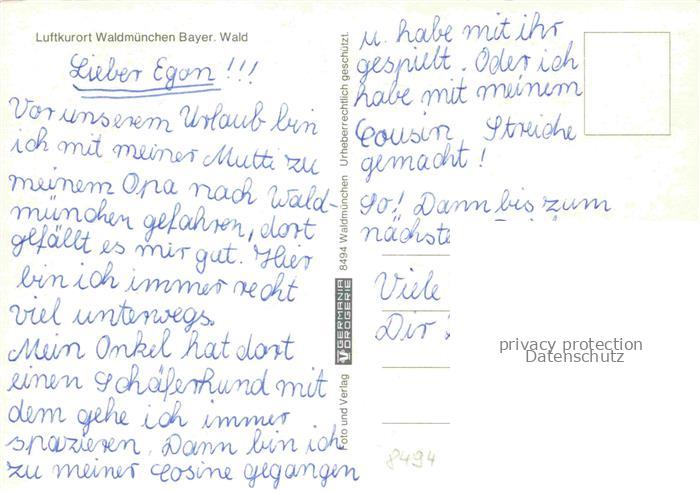 Luftkurort Waldmünchen Bayer. Wald
Lieber Egon!!!
Vor unserem Urlaub bin
ich mit meiner Mutti zu
meinem Opa nach Wald-
münchen gefahren, dort
gefällt es mir gut. Hier
bin ich immer recht
viel unterwegs.
Mein Onkel hat dort
einen Schäferhund mit
dem gehe ich immer
spazieren. Dann bin ich
zu meiner Cosine gegangen
Foto und Verlag GERMANIA DROGERIE 8494 Waldmünchen Urheberrechtlich geschützt.
u. habe mit ihr
gespielt. Oder ich
habe mit meinem
Cousin Streiche
gemacht!
So! Dann bis zum
nächste
Viele
Dir
privacy protection
Datenschutz
8494